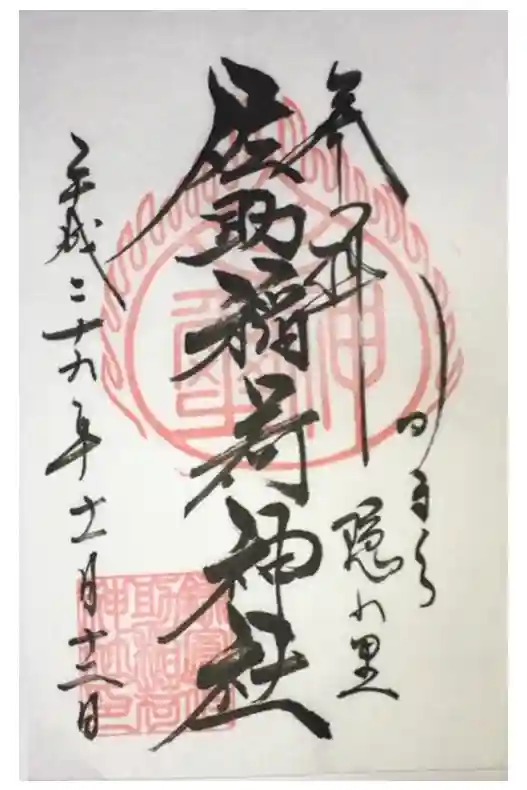 奉拝
かまくら
隠れ里
佐助稲荷神社
平成二十九年十一月十二日
鎌倉佐
助稲荷
神社印